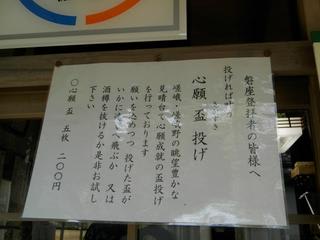 磐座登拝者の皆様へ
投げれば
心願 盃 投げ
嵯峨・嵯峨野の眺望豊かな
見晴台で心願成就の盃投げ
を行っております
願いを込めつつ 投げた盃が
いかに 飛ぶか 又は
酒樽を抜けるか是非お試し
下さい
〇心願 盃 五枚 二〇〇円